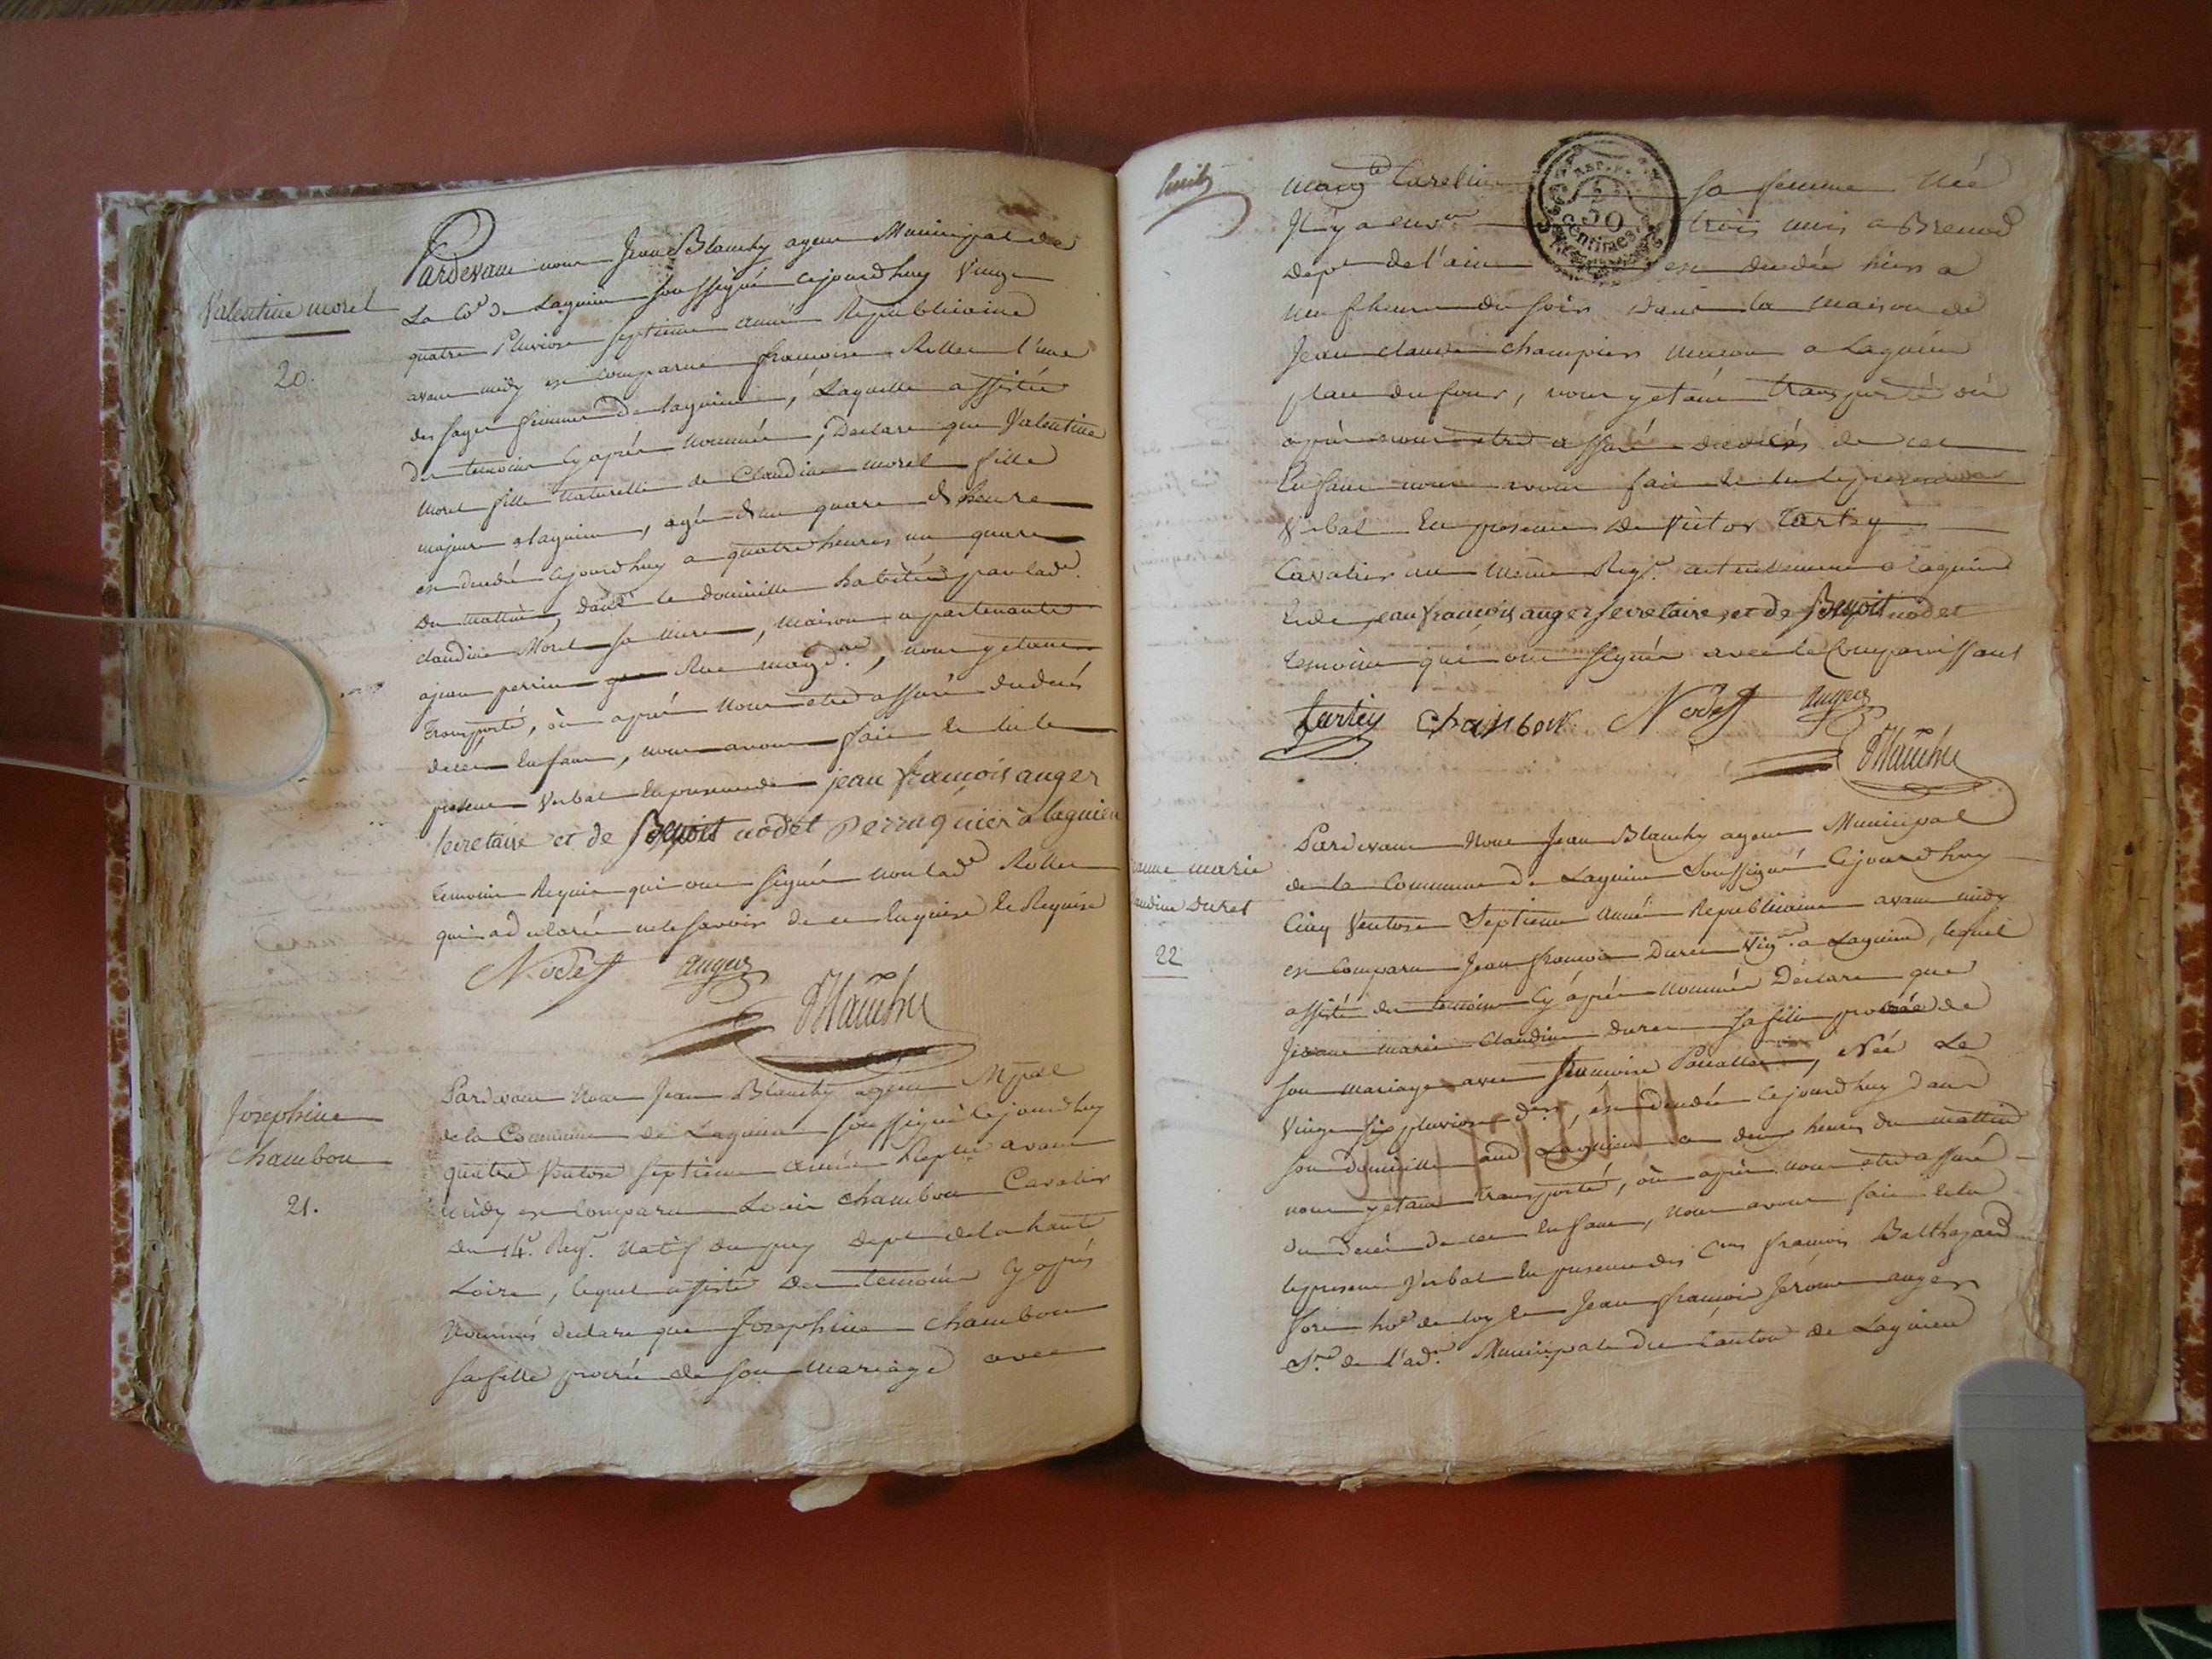 Valentine morel
20.
Pardevant nous Jean Blanchy agent Municipal de
La Co.e de Lagnieu soussigné cejourdhuy Vingt
quatre Pluviose septieme année Republicaine
avant midy est comparue francoise Rollet l'une
des sages femmes de lagnieu, Laquelle assistée
des temoins cy après nommés, Declare que Valentine
Morel fille Naturelle de Claudine morel fille
majeure a lagnieu, agée d'un quart d'heure
est decedée cejourdhuy a quatre heures un quart
du mattin, dans le domicille habité par lad.e
claudine Morel sa mere, maison apartenante
ajean perrin Rue magd.ne, nous y etant
transporté, où après nous etre assuré du decès
de cet Enfant, nous avons fait et lu le
present Verbal en presence de jean francois auger
secretaire et de Benoit nodet perruquier à lagnieu
temoins Requis qui ont signés non lad.e Rollet
qui a declarée ne le savoir de ce Enquise et Requise
Nodet auger
Blanchy
Josephine
chambon
21.
Pardevant Nous Jean Blanchy agent Mpal
de la Commune de Lagnieu soussigné cejourdhuy
quatre Ventose septieme année Repne avant
midy est comparu Louis chambon Cavalier
du 14.e Reg.t Natif du puy dept de la haute
Loire, lequel assisté des temoins cy après
Nommés declare que Josephine chambon
sa fille procréé de son mariage avec
marg.te sa femme Née
Il y a env.on trois mois a Brenod
dept de l'ain est decedée hier a
neuf heure du soir dans la maison de
Jean claude champier macon a Lagnieu
place du four, nous y etant transporté où
après nous etre assuré du decès de cet
Enfant nous avons fait et lu le present
Verbal En presence de Victor Tartey
Cavalier au même Reg.t actuellement a lagnieu
Et de jean francois auger secretaire et de Benoit nodet
temoins qui ont signés avec le Comparoissant
tartey chambon Nodet auger
Blanchy
Jeanne marie
Claudine Duret
22
Pardevant Nous Jean Blanchy agent Municipal
de la Commune de Lagnieu Soussigné Cejourdhuy
Cinq Ventose Septieme Année Republicaine avant midy
est comparu Jean francois Duret Vig.on a Lagnieu, lequel
assisté des temoins cy après nommés Déclare que
Jeanne marie Claudine Duret sa fille procréé de
son mariage avec francoise, Née Le
Vingt six pluviose d.er, est decedée cejourdhuy dans
son domicille aud Lagnieu a deux heures du mattin
nous y etant transporté, où après nous etre assuré
du decès de cet Enfant, nous avons fait et lu
le present Verbal En presence des C.ens francois Balthazard
ho.e de loy et Jean francois Jerome auger
S.re de l'ad.on Municipale du Canton de Lagnieu
REP. FRA.
50
centimes